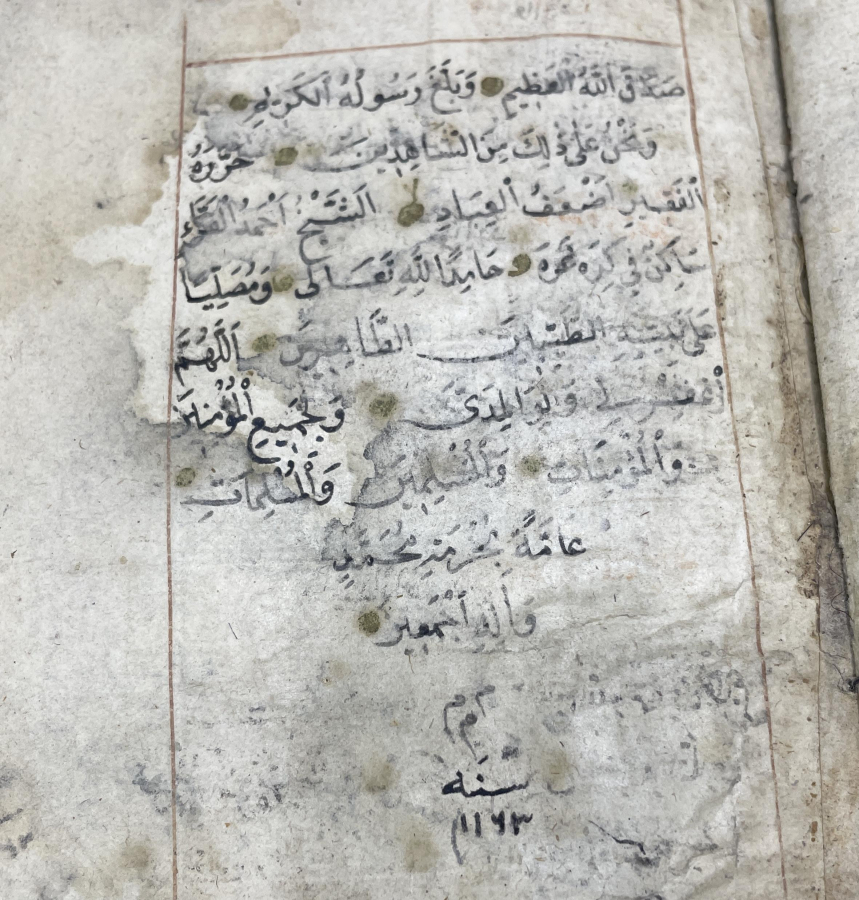 صَدَقَ اللَّهُ الْعَظِيمِ وَبَلَّغَ رَسُولُهُ الْكَرِيمِ
وَنَحْنُ عَلَى ذٰلِكَ مِنَ الشَّاهِدِينَ حَرَّرَهُ
الْفَقِيرِ اَضْعَفُ الْعِبَادِ الشَّيْخْ اَحْمَدُ
سَاكِنْ فِي حَامِدًا لِلّٰهِ تَعَالَى وَمُصَلِّيًا
عَلَى الطَّيِّبِينَ الطَّاهِرِينَ اَللّٰهُمَّ
وَلِوَالِدَيَّ وَلِجَمِيعِ الْمُؤْمِنِينَ
وَالْمُؤْمِنَاتِ وَالْمُسْلِمِينَ وَالْمُسْلِمَاتِ
عَامَّةً بِحُرْمَةِ مُحَمَّدٍ
وَاٰلِهِ اَجْمَعِينَ
م م م
سَنَه
١١٦٣